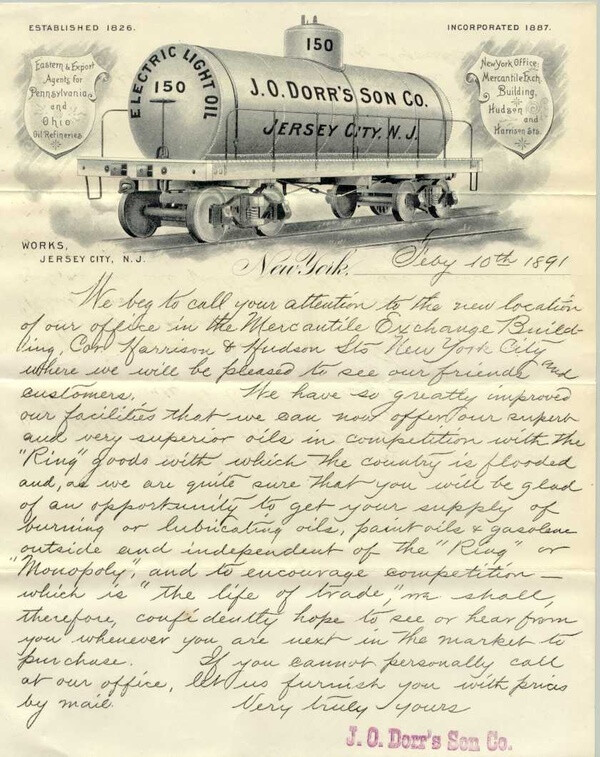 ESTABLISHED 1826.
INCORPORATED 1887.
Eastern & Export
Agents for
Pennsylvania
and
Ohio
Oil Refineries
150
ELECTRIC LIGHT OIL
150
J.O. DORR'S SON CO.
JERSEY CITY, N.J.
New York Office,
Mercantile Exch.
Building,
Hudson
and
Harrison Sts.
WORKS,
JERSEY CITY, N.J.
New York, Feby 10th 1891
We beg to call your attention to the new location
of our office in the Mercantile Exchange Build-
ing, Cor Harrison & Hudson Sts New York City
where we will be pleased to see our friends and
customers. We have so greatly improved
our facilities that we can now offer our superb
and very superior oils in competition with the
"Ring" goods with which the country is flooded
and, as we are quite sure that you will be glad
of an opportunity to get your supply of
burning or lubricating oils, paint oils & gasolene
outside and independent of the "Ring" or
"Monopoly", and to encourage competition —
which is "the life of trade," we shall,
therefore, confidently hope to see or hear from
you whenever you are next in the market to
purchase. If you cannot personally call
at our office, let us furnish you with prices
by mail. Very truly yours
J. O. Dorr's Son Co.